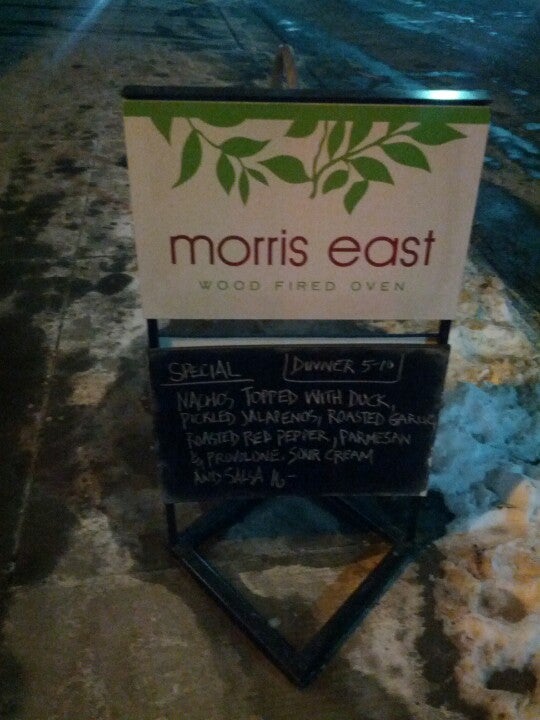 morris east
WOOD FIRED OVEN
SPECIAL DINNER 5-10
NACHOS, TOPPED WITH DUCK,
PICKLED JALAPENOS, ROASTED GARLIC
ROASTED RED PEPPER, PARMESAN
& PROVOLONE. SOUR CREAM
AND SALSA 16-